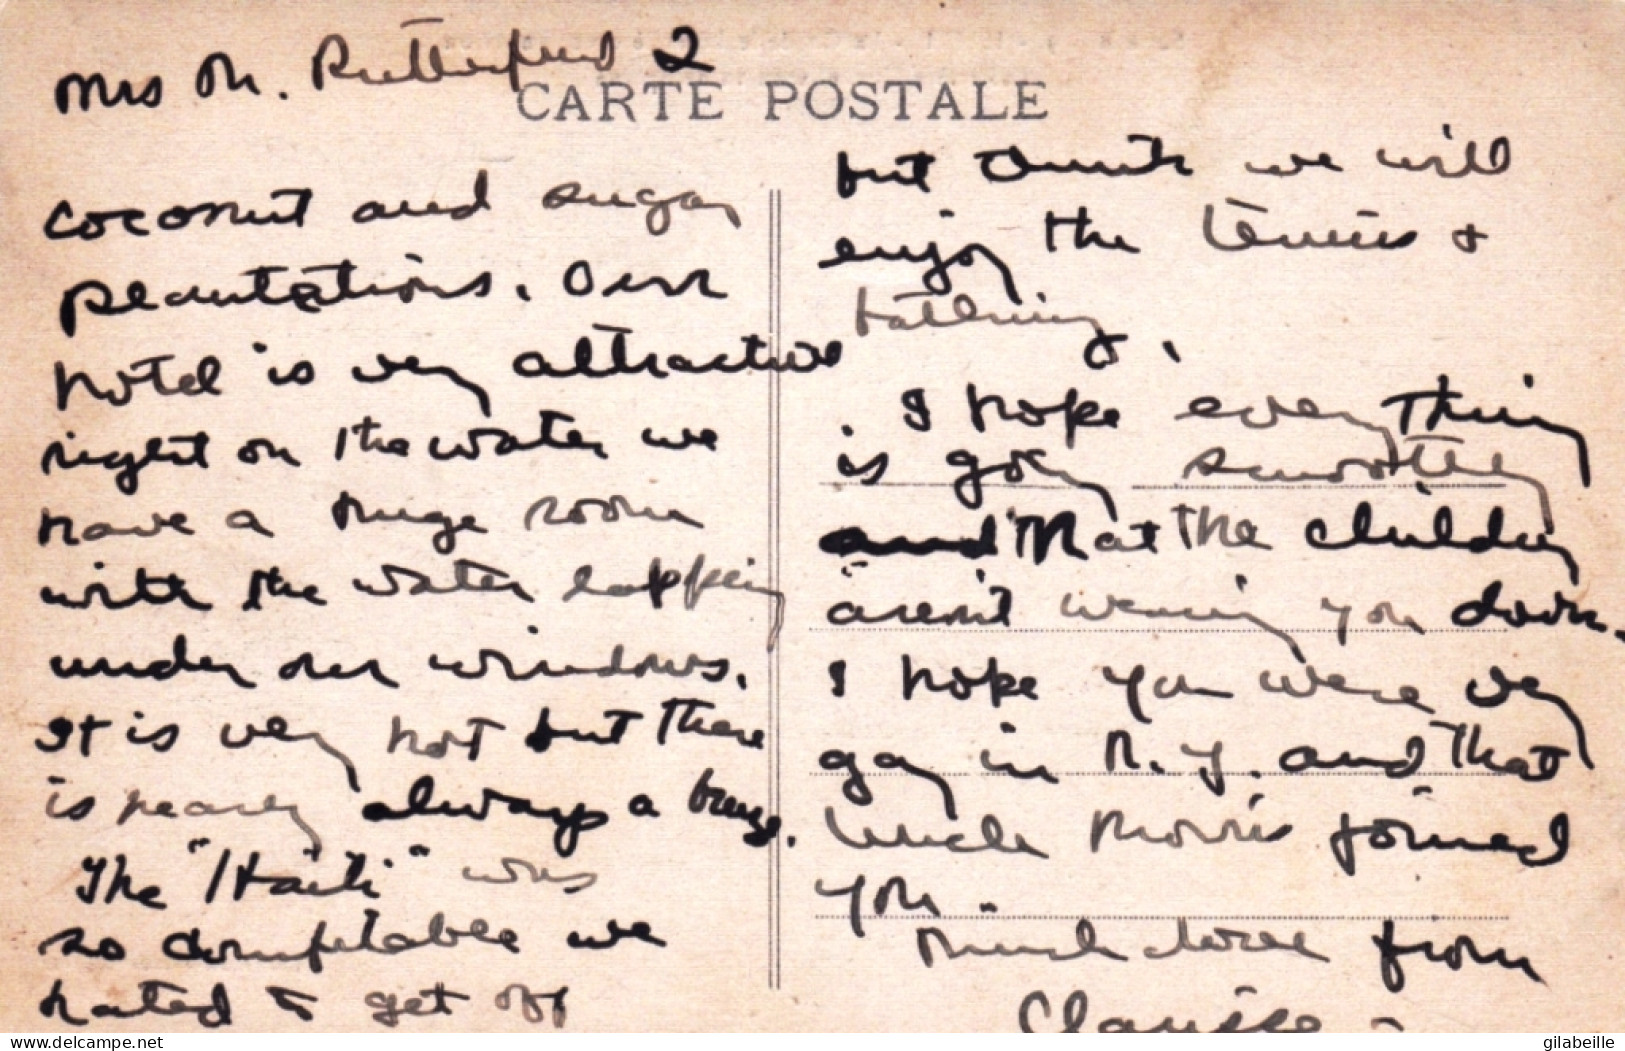 Mrs M. Rutherfurd 2
CARTE POSTALE
coconut and sugar
plantations. Our
hotel is very attractive
right on the water we
have a huge room
with the water lapping
under our windows.
It is very hot but there
is nearly always a breeze.
The "Haiti" was
so comfortable we
hated to get off
but think we will
enjoy the tennis &
bathing.
I hope everything
is going smoothly
and that the children
aren't wearing you down.
I hope you were very
gay in N.Y. and that
Uncle Morris joined
you.
Much love from
Clarisse -
delcampe.net
gilabeille